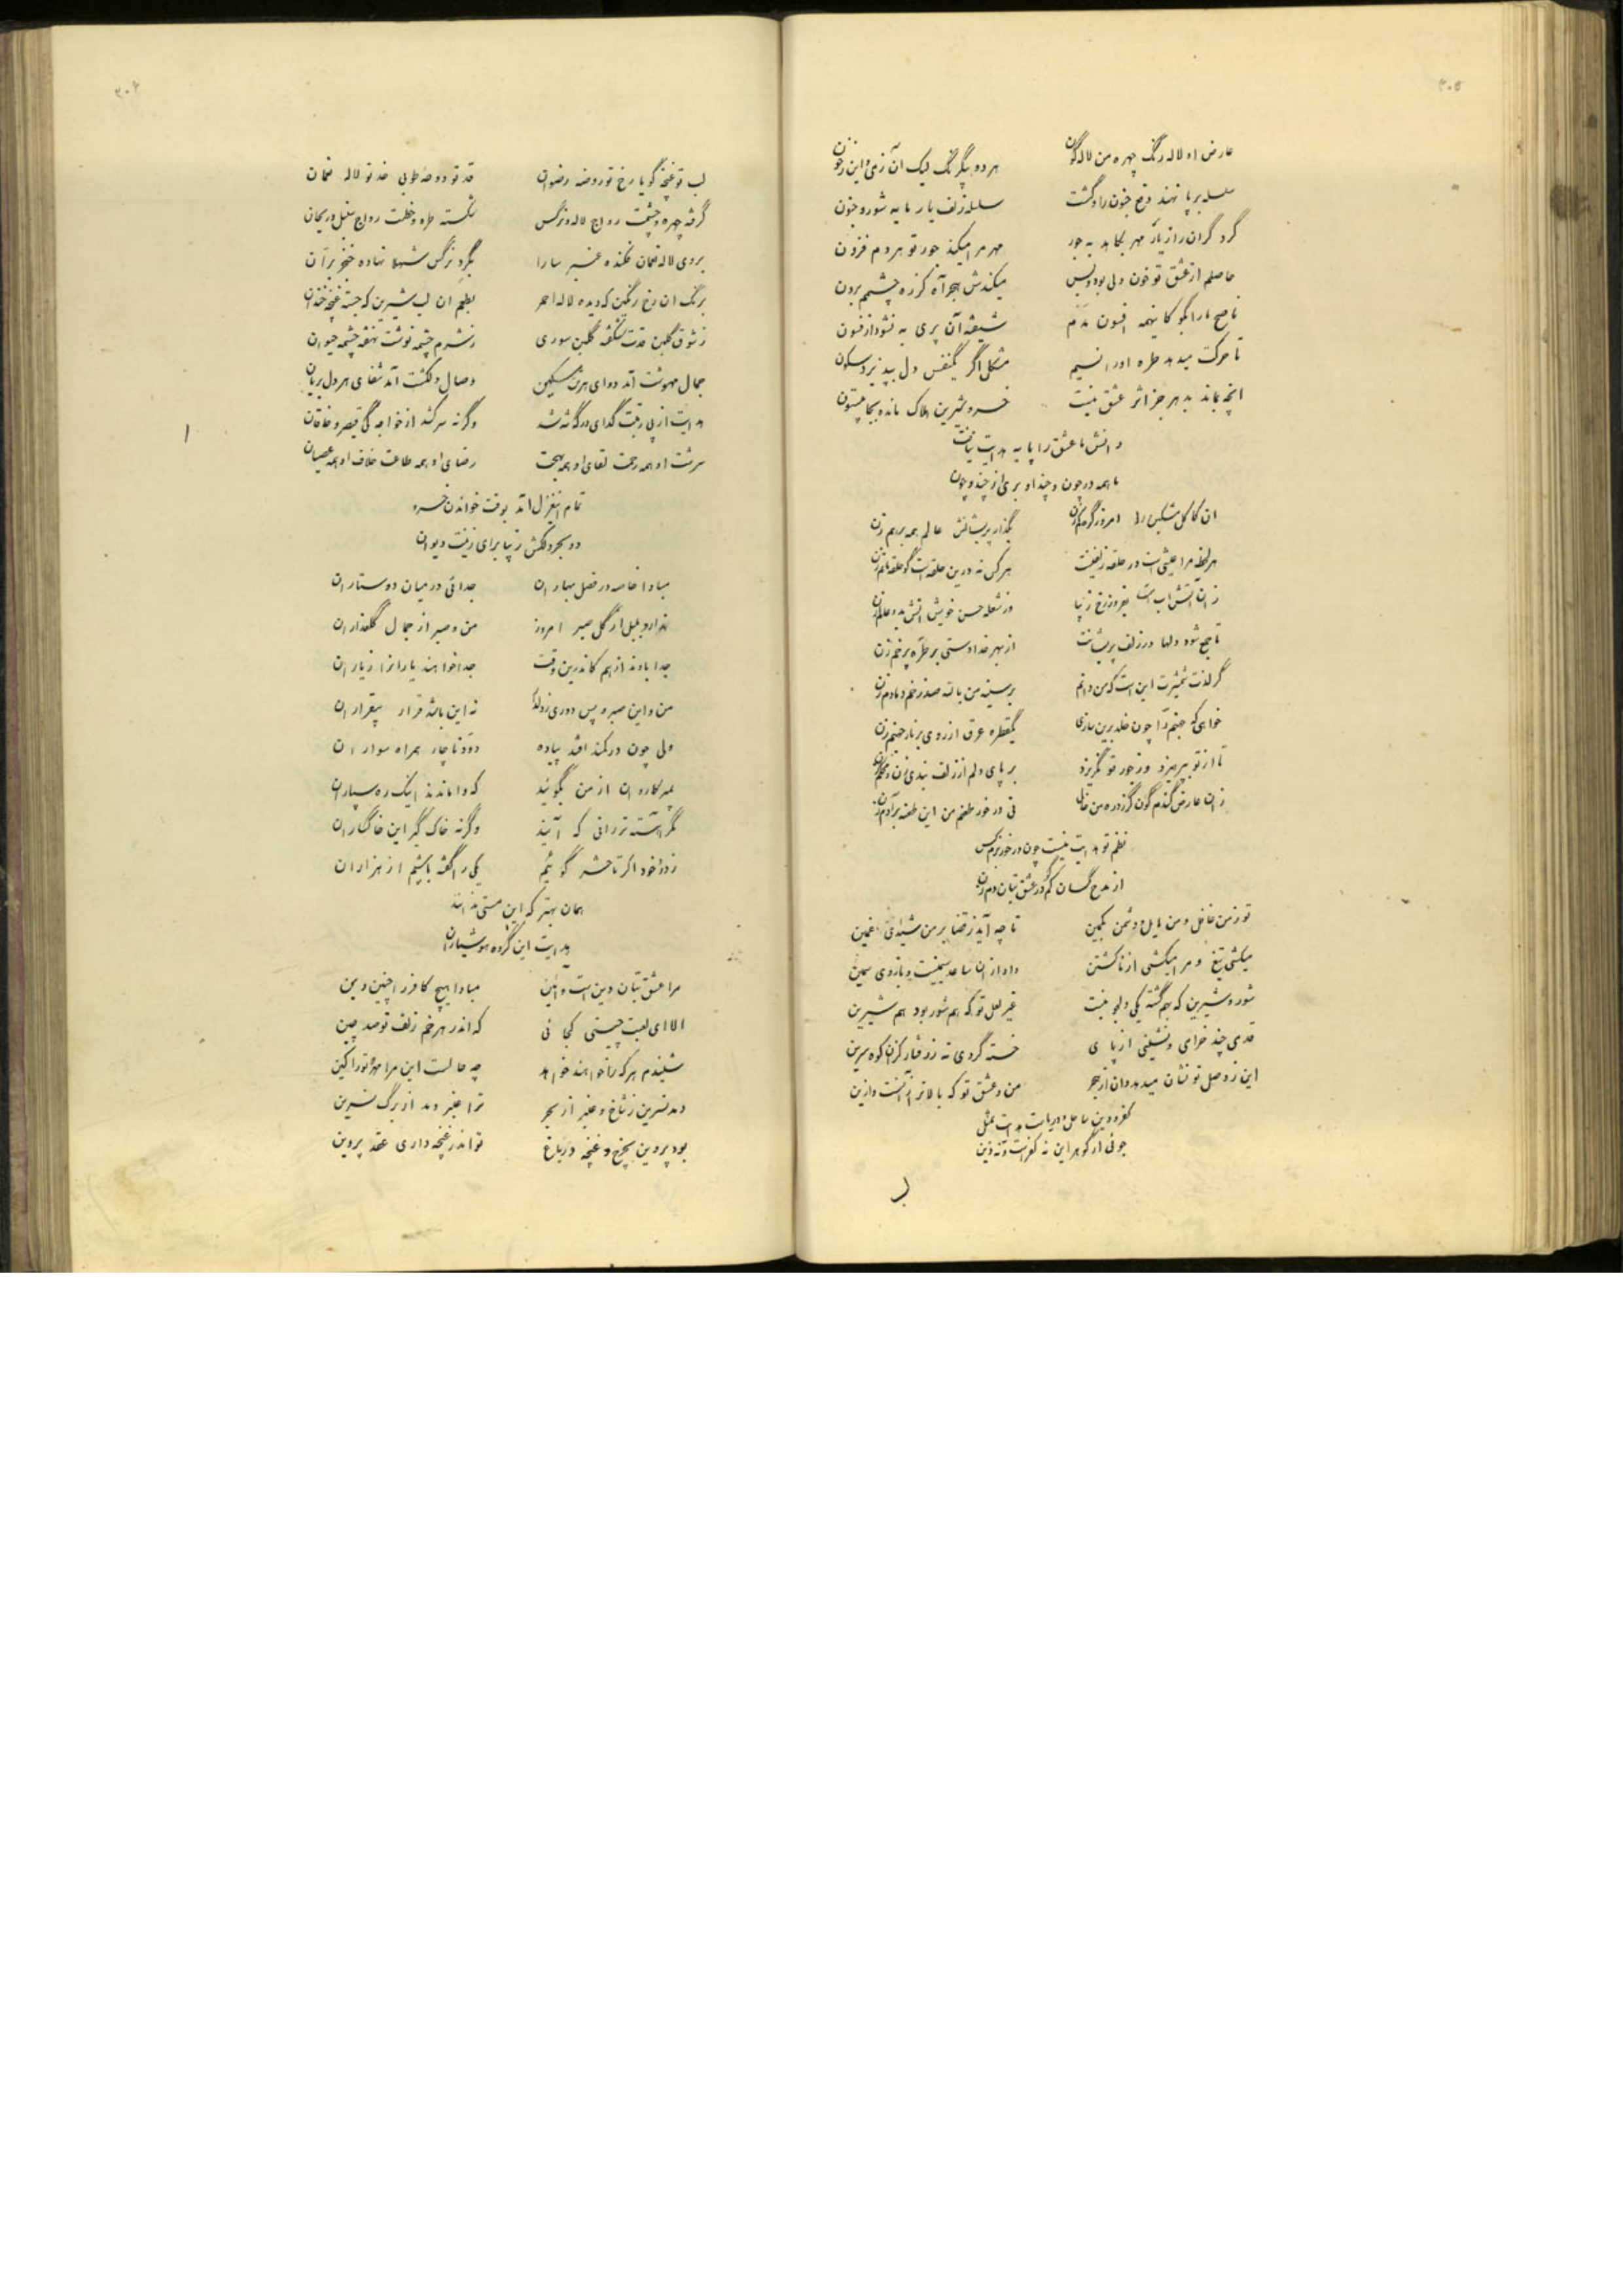 ۳۰۵
عارض او لاله رنگ چهره من لاله گون هر دو بیکرنگ لیک آن ز می و این ز خون
سلسله بر پا نهند دفع جنون را و گشت سلسله زلف یار مایه شور و جنون
گر دگران را ز یار مهر بکاهد به جور مهر مرا میکند جور تو هر دم فزون
حاصلم از عشق تو خون دلی بود و بس میکندش هجر آه کز ره چشمم برون
ناصح ما را بگو کاینهمه افسون مدم شیفته آن پری به نشود از فسون
تا حرکت میدهد طره او را نسیم مشکل اگر یکنفس دل بپذیرد سکون
آنچه بماند بدهر جز اثر عشق نیست خسرو و شیرین هلاک مانده بجا بیستون
دانش ما عشق را پایه هدایت نیافت
ما همه در چون و چند او بری از چند و چون
ان کاکل مشکین را امروز گره کم زن بگذار پریشانش عالم همه برهم زن
هر لحظه مرا عیشی است در حلقه زلفینت هر کس نه درین حلقه است گو حلقه ماتم زن
زان آتش اب است بفروز رخ زیبا وز شعله حسن خویش اتش بدو عالم زن
تا جمع شود دلها در زلف پریشانت از بهر خدا دستی بر طره پر خم زن
گر لذت شمشیرت این است که من دانم بر سینه من بالله صد زخم دمادم زن
خواهی که جهنم را چون خلد برین سازی یکقطره عرق از روی بر نار جهنم زن
تا از تو نپرهیزد وز جور تو نگریزد بر پای دلم از زلف بندی زن و محکم زن
زان عارض گندم گون گر زد ره من خالی نی در خور طعنم من این طعنه بر آدم زن
نظم تو هدایت نیست چون در خور بزم کس
از مدح کسان کم گو در عشق بتان دم زن
تو ز من غافل و من مایل و دشمن بکمین تا چه آید ز قضا بر من شیدائی غمین
میکشی تیغ و مرا میکشی از ناکشتن داد از ان ساعد سیمینت و بازوی سمین
شور و شیرین که بهم گشته یکی دلجو نیست غیر لعل تو که هم شور بود هم شیرین
قدمی چند خرامی و نشینی از پای خسته گردی نه ز رفتار کزان کوه سرین
این ز وصل تو نشان میدهد و ان از هجر من و عشق تو که بالاتر از آنست و ازین
کفر و دین ساحل و دریاست هدایت بمثل
جوئی ار گوهر این نه کفرست و نه دین
۳۰۶
لب تو غنچه گویا رخ تو روضه رضوان قد تو دوحه طوبی خد تو لاله نعمان
گرفته چهره و چشمت رواج لاله و نرگس شکسته طره و خطت رواج سنبل و ریحان
بروی لاله نعمان فکنده عنبر سارا بگرد نرگس شهلا نهاده خنجر بران
برنگ ان رخ رنگین که دیده لاله احمر بطعم ان لب شیرین که جسته غنچه خندان
ز شوق گلبن قدت شکفته گلبن سوری ز شرم چشمه نوشت نهفته چشمه حیوان
جمال مهوشت آمد دوای هر تن مسکین وصال دلکشت آمد شفای هر دل بریان
هدایت از پی رتبت گدای درگه شه شد وگرنه سر کشد از خواجه گی قیصر و خاقان
سرشت او همه رحمت لقای او همه بهجت رضای او همه طاعت خلاف او همه عصیان
تمام این غزل آمد بوقت خواندن خسرو
دو بحر دلکش زیبا برای زینت دیوان
مبادا خاصه در فصل بهاران جدائی در میان دوستاران
ندارد بلبل از گل صبر امروز من و صبر از جمال گلعذاران
جدا بادند از هم کاندرین وقت جدا خواهند یارانرا ز یاران
من و این صبر و پس دوری ز دلدار نه این باشد قرار بیقراران
ولی چون در کمند افتد پیاده دود ناچار همراه سواران
بمیر کاروان از من بگوئید که واماندند اینک ره سپاران
مگر آهسته تر رانی که آیند وگرنه خاک گیر این خاکساران
ز درد خود اگر تا حشر گوئیم یکی را گفته باشیم از هزاران
همان بهتر که این مستی ندانند
هدایت این گروه هوشیاران
مرا عشق بتان دین است و آئین مبادا هیچ کافر را چنین دین
الا ای لعبت چینی کجائی که اندر هر خم زلف تو صد چین
شنیدم هر که را خواهند خواهد چه حالست این مرا مهر و تو را کین
دمد نسرین ز شاخ و عنبر از بحر ترا عنبر دمد از برگ نسرین
بود پروین بچرخ و غنچه در باغ تو اندر غنچه داری عقد پروین